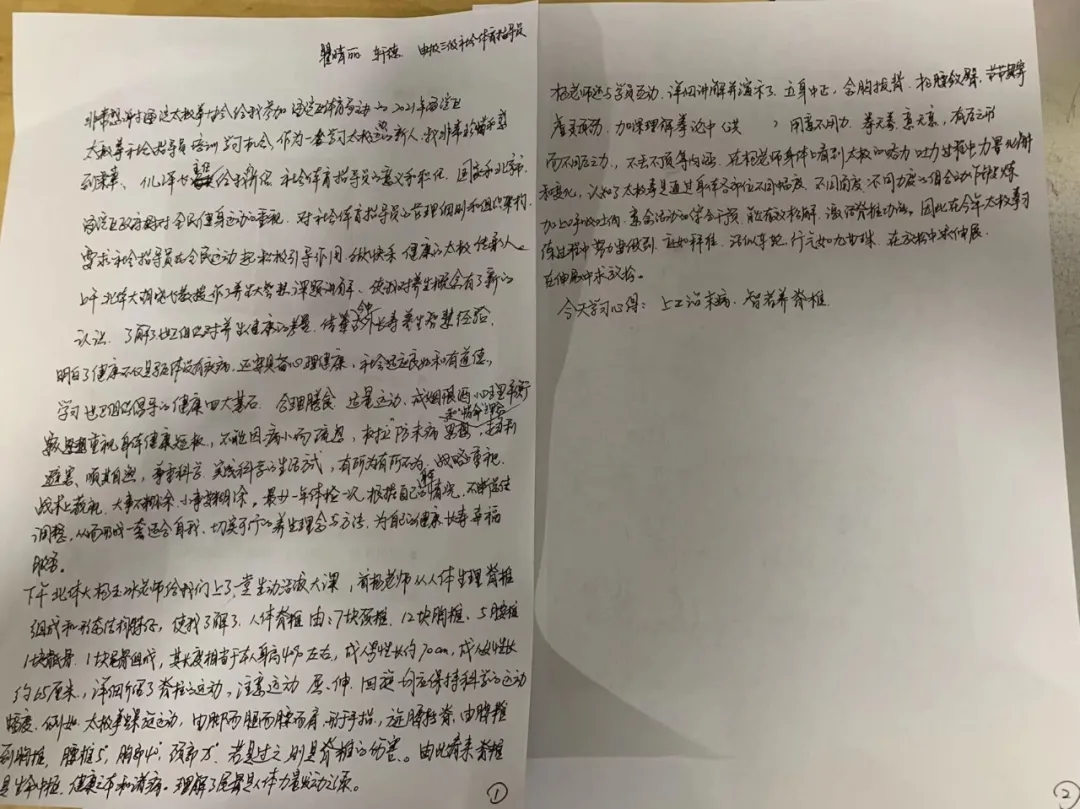 瞿晴丽 轩德 申报三级社会体育指导员
非常感谢通辽太极拳协会给我参加 体育局 2021年
太极拳社会指导员培训学习机会，作为一名学习太极的新人，我非常珍惜和感
到荣幸、 给 社会体育指导员的意义和职任、国家和北京、
政府对全民健身运动的重视、对社会体育指导员的管理细则和组织架构、
要求社会指导员在全民运动起积极引导作用、做快乐 健康的太极传承人。
上午北体大胡 教授作了养生大智慧课题讲解、使我对养生概念有了新的
认识、了解了世卫组织对养生健康的 、 中外长寿养生智慧经验，
明白了健康不仅是躯体没有疾病，还要具备心理健康、社会适应良好和有道德。
学习世卫组织倡导的健康四大基石、合理膳食 适量运动、戒烟限酒 心理平衡
重视身体健康短板，不能因病小而疏忽，树立"防未病 思想，趋利
避害、顺其自然，尊重科学、实践科学的生活方式，有所为有所不为、战略重视
战术上藐视、大事不糊涂、小事装糊涂。最少一年体检一次、根据自己的 情况，不断总结
调整，从而形成一套适合自我、切实可行的养生理念与方法，为自己的健康长寿幸福
服务。
下午北体大杨玉冰老师给我们上了一堂生动活泼大课，首先杨老师从人体生理脊椎
组成和形态结构特征，使我了解了 人体脊柱由：7块颈椎、12块胸椎、5腰椎
1块骶骨、1块尾骨组成，其长度相当于本人身高4%左右，成人男性长约70cm，成人女性长
约65厘米，详细介绍了脊柱的运动，注意运动 屈、伸、回旋均应保持科学的运动
幅度、例如 太极拳螺旋运动，由脚而腿而腰而肩、形于手指，旋腰转脊、由腰椎
到胸椎，腰椎5°，胸部4°，颈部 8°，若是过之则是脊椎的伤害。由此看来脊椎
是生命中枢、健康之本和诸病。理解了尾骨是人体力量运动之源。
①
杨老师还与学员互动、详细讲解并演示了、立身中正，含胸拔背、松腰敛臀、
虚灵顶劲、加深理解拳论中（ ） 用意不用力、拳无拳、意无意，有左之动
而不用左动，不丢不顶等内涵、在杨老师身体上看到太极的 力 过程中力量
和变化，认知了太极拳是通过身体各部位不同幅度、不同角度、不同力度的组合动作锻炼
加上呼吸吐纳、意念活动的综合干预，能有效松解、激活脊椎功能，因此在今年太极拳习
练过程中努力要做到、立如秤准、活似车轮、行气如九曲珠、在放松中求伸展
在伸展中求放松。
今天学习心得： 上工治未病、智者养脊椎
②